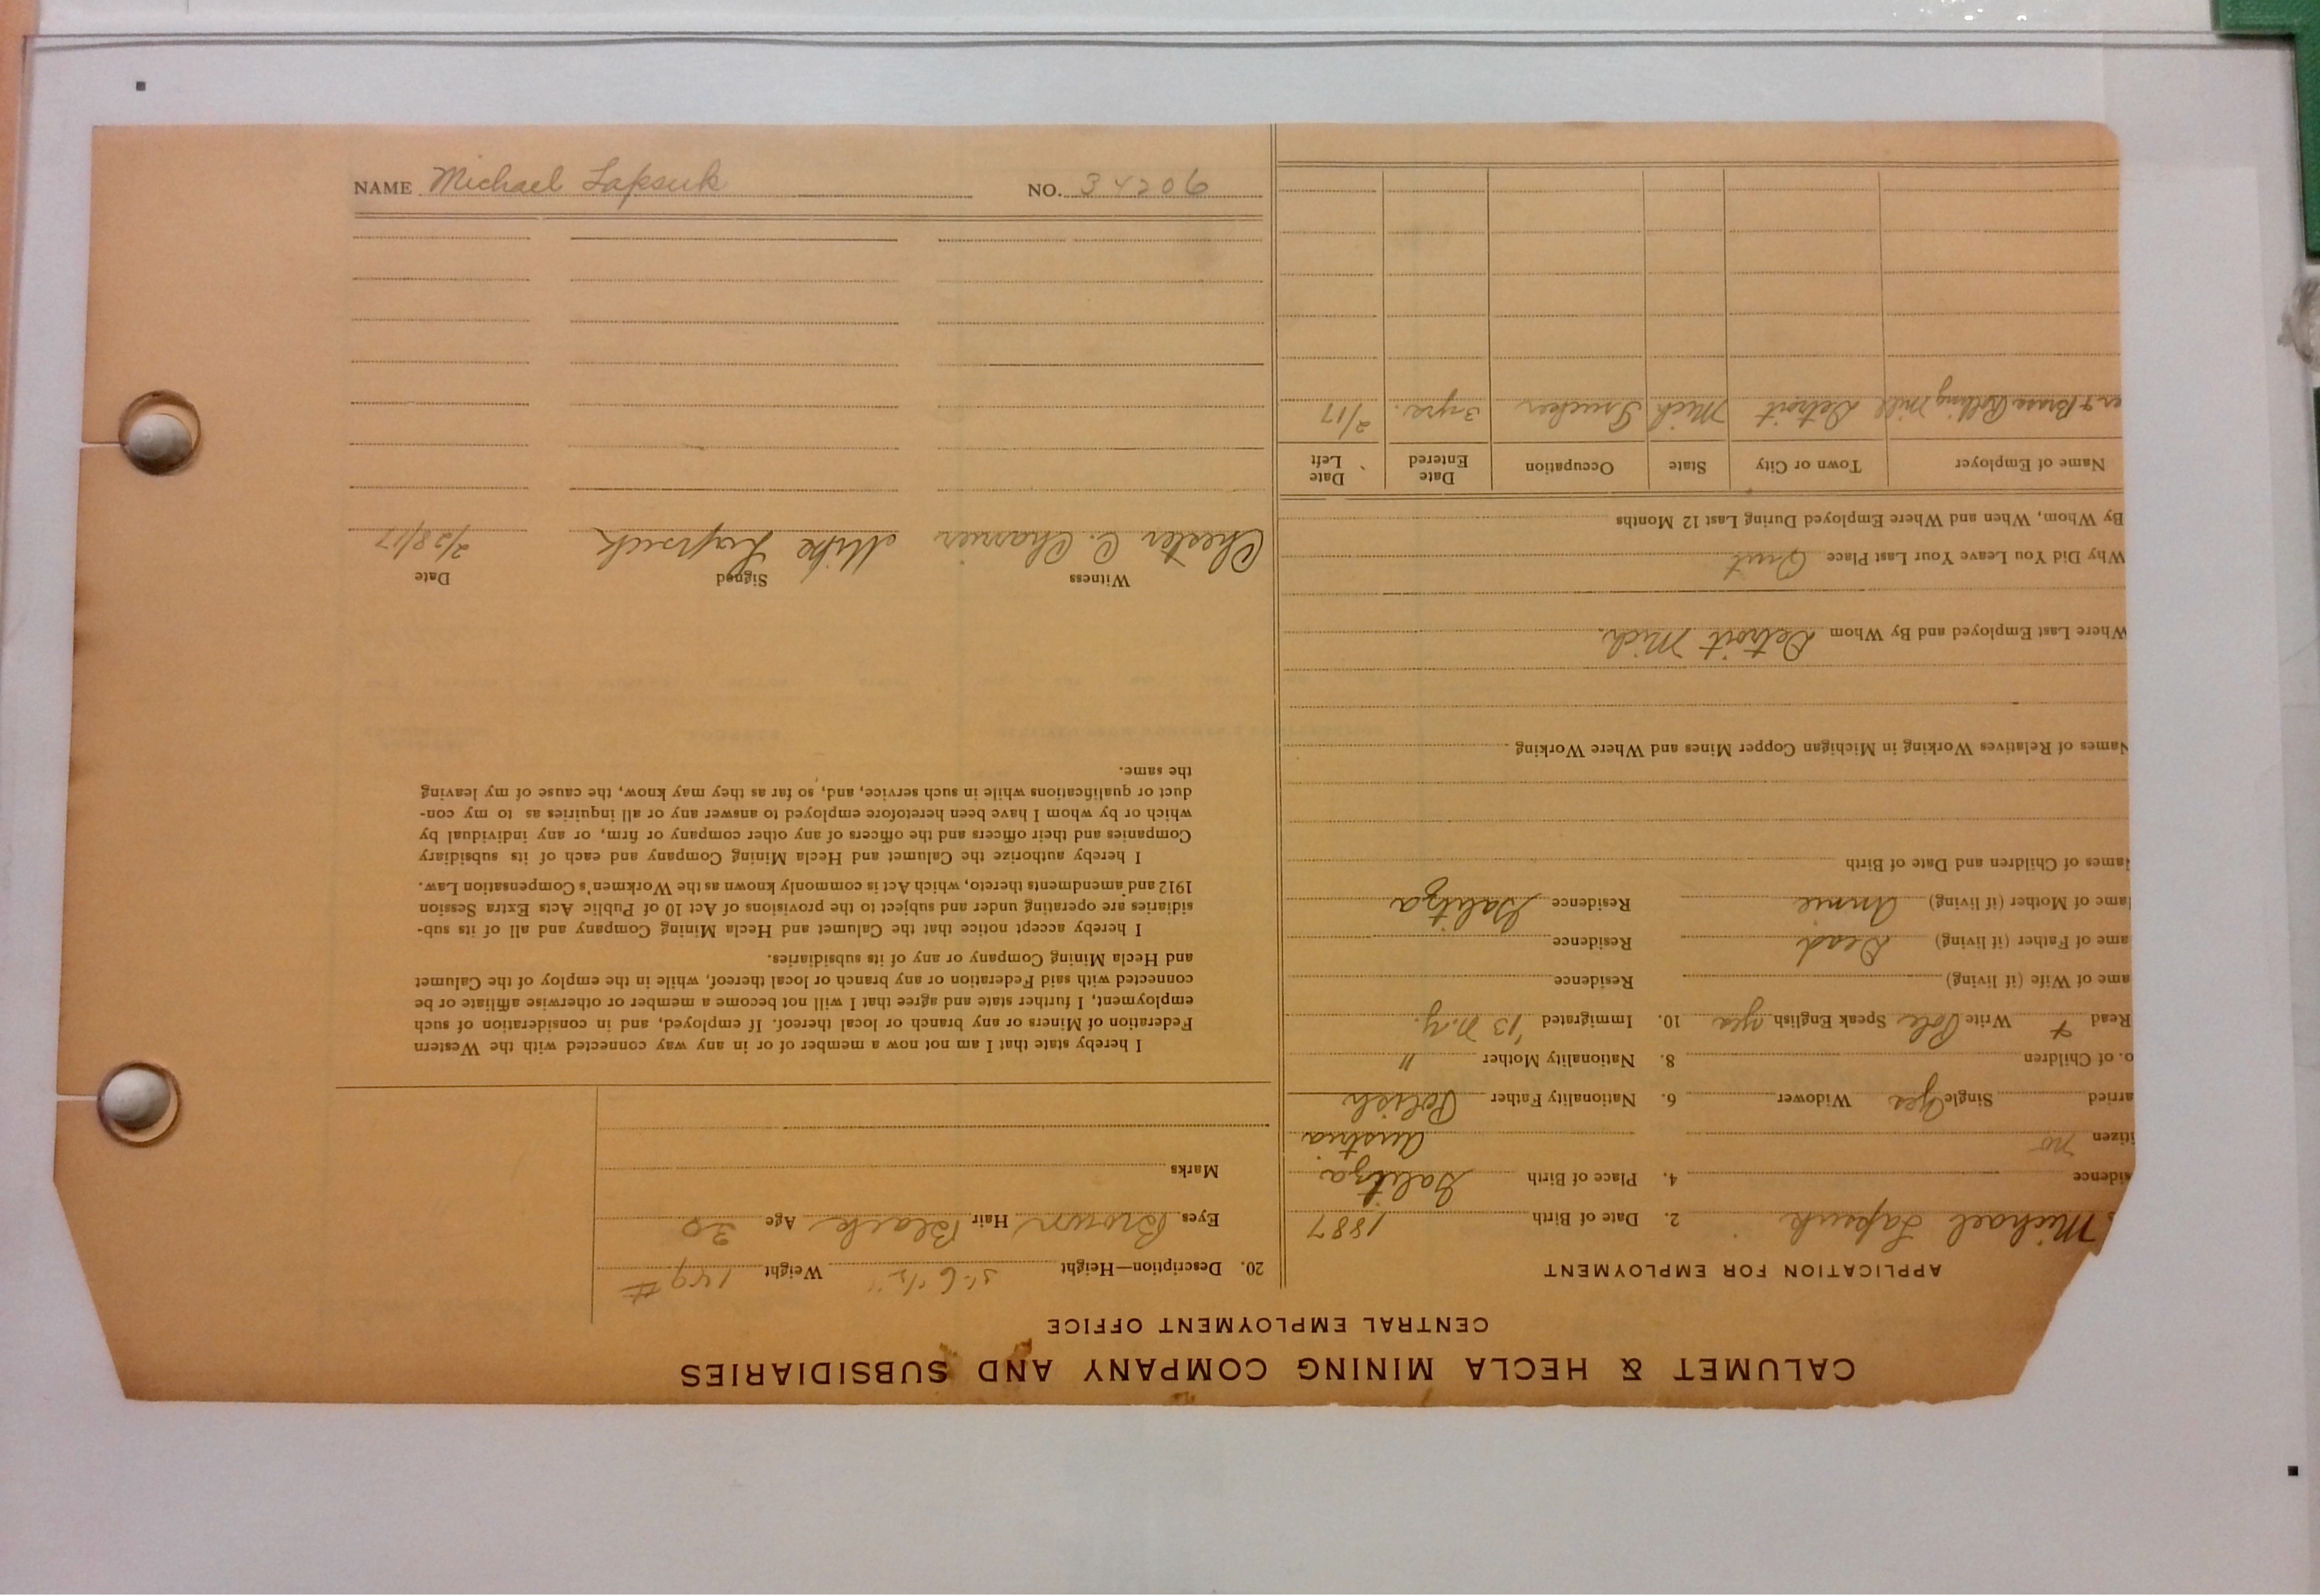 NAME Michael Lapsuk NO. 34206
CALUMET & HECLA MINING COMPANY AND SUBSIDIARIES
CENTRAL EMPLOYMENT OFFICE
APPLICATION FOR EMPLOYMENT
Michael Lapsuk 2. Date of Birth 1887
sidence 4. Place of Birth Galitza
itizen no Austria
arried Single Yes Widower 6. Nationality Father Polish
o. of Children 8. Nationality Mother "
Read + Write Pole Speak English yes 10. Immigrated '13 N.Y.
ame of Wife (if living) Residence
ame of Father (if living) Dead Residence
ame of Mother (if living) Annie Residence Galitza
ames of Children and Date of Birth
Names of Relatives Working in Michigan Copper Mines and Where Working
Where Last Employed and By Whom Detroit Mich.
Why Did You Leave Your Last Place Quit
By Whom, When and Where Employed During Last 12 Months
Name of Employer Town or City State Occupation Date Entered Date Left
er & Brass Rolling Mill Detroit Mich Trucker 3 yrs. 2/17
20. Description—Height 5' 6 1/2" Weight 149 #
Eyes Brown Hair Black Age 30
Marks
I hereby state that I am not now a member of or in any way connected with the Western
Federation of Miners or any branch or local thereof. If employed, and in consideration of such
employment, I further state and agree that I will not become a member or otherwise affiliate or be
connected with said Federation or any branch or local thereof, while in the employ of the Calumet
and Hecla Mining Company or any of its subsidiaries.
I hereby accept notice that the Calumet and Hecla Mining Company and all of its sub-
sidiaries are operating under and subject to the provisions of Act 10 of Public Acts Extra Session
1912 and amendments thereto, which Act is commonly known as the Workmen's Compensation Law.
I hereby authorize the Calumet and Hecla Mining Company and each of its subsidiary
Companies and their officers and the officers of any other company or firm, or any individual by
which or by whom I have been heretofore employed to answer any or all inquiries as to my con-
duct or qualifications while in such service, and, so far as they may know, the cause of my leaving
the same.
Witness Signed Date
Chester C. Charrier Mike Lapsuk 2/28/17